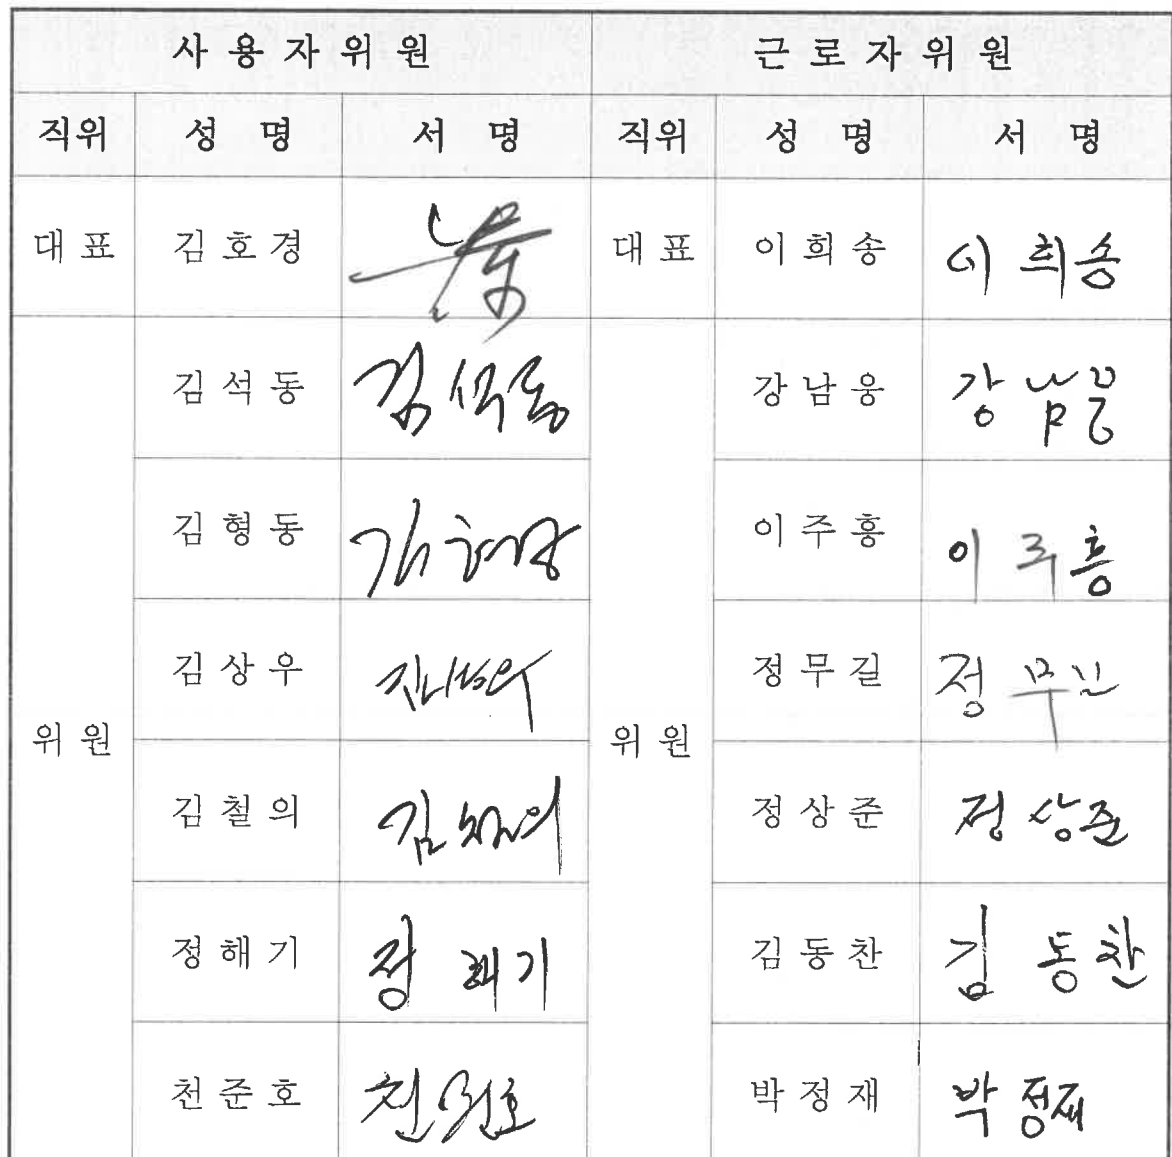 사용자위원 근로자위원
직위 성 명 서 명 직위 성 명 서 명
대표 김호경 대표 이희송 이희송
김석동 김석동 강남웅 강남웅
김형동 김형동 이주흥 이주흥
김상우 김상우 정무길 정무길
위원 위원
김철의 김철의 정상준 정상준
정해기 정해기 김동찬 김동찬
천준호 천준호 박정재 박정재